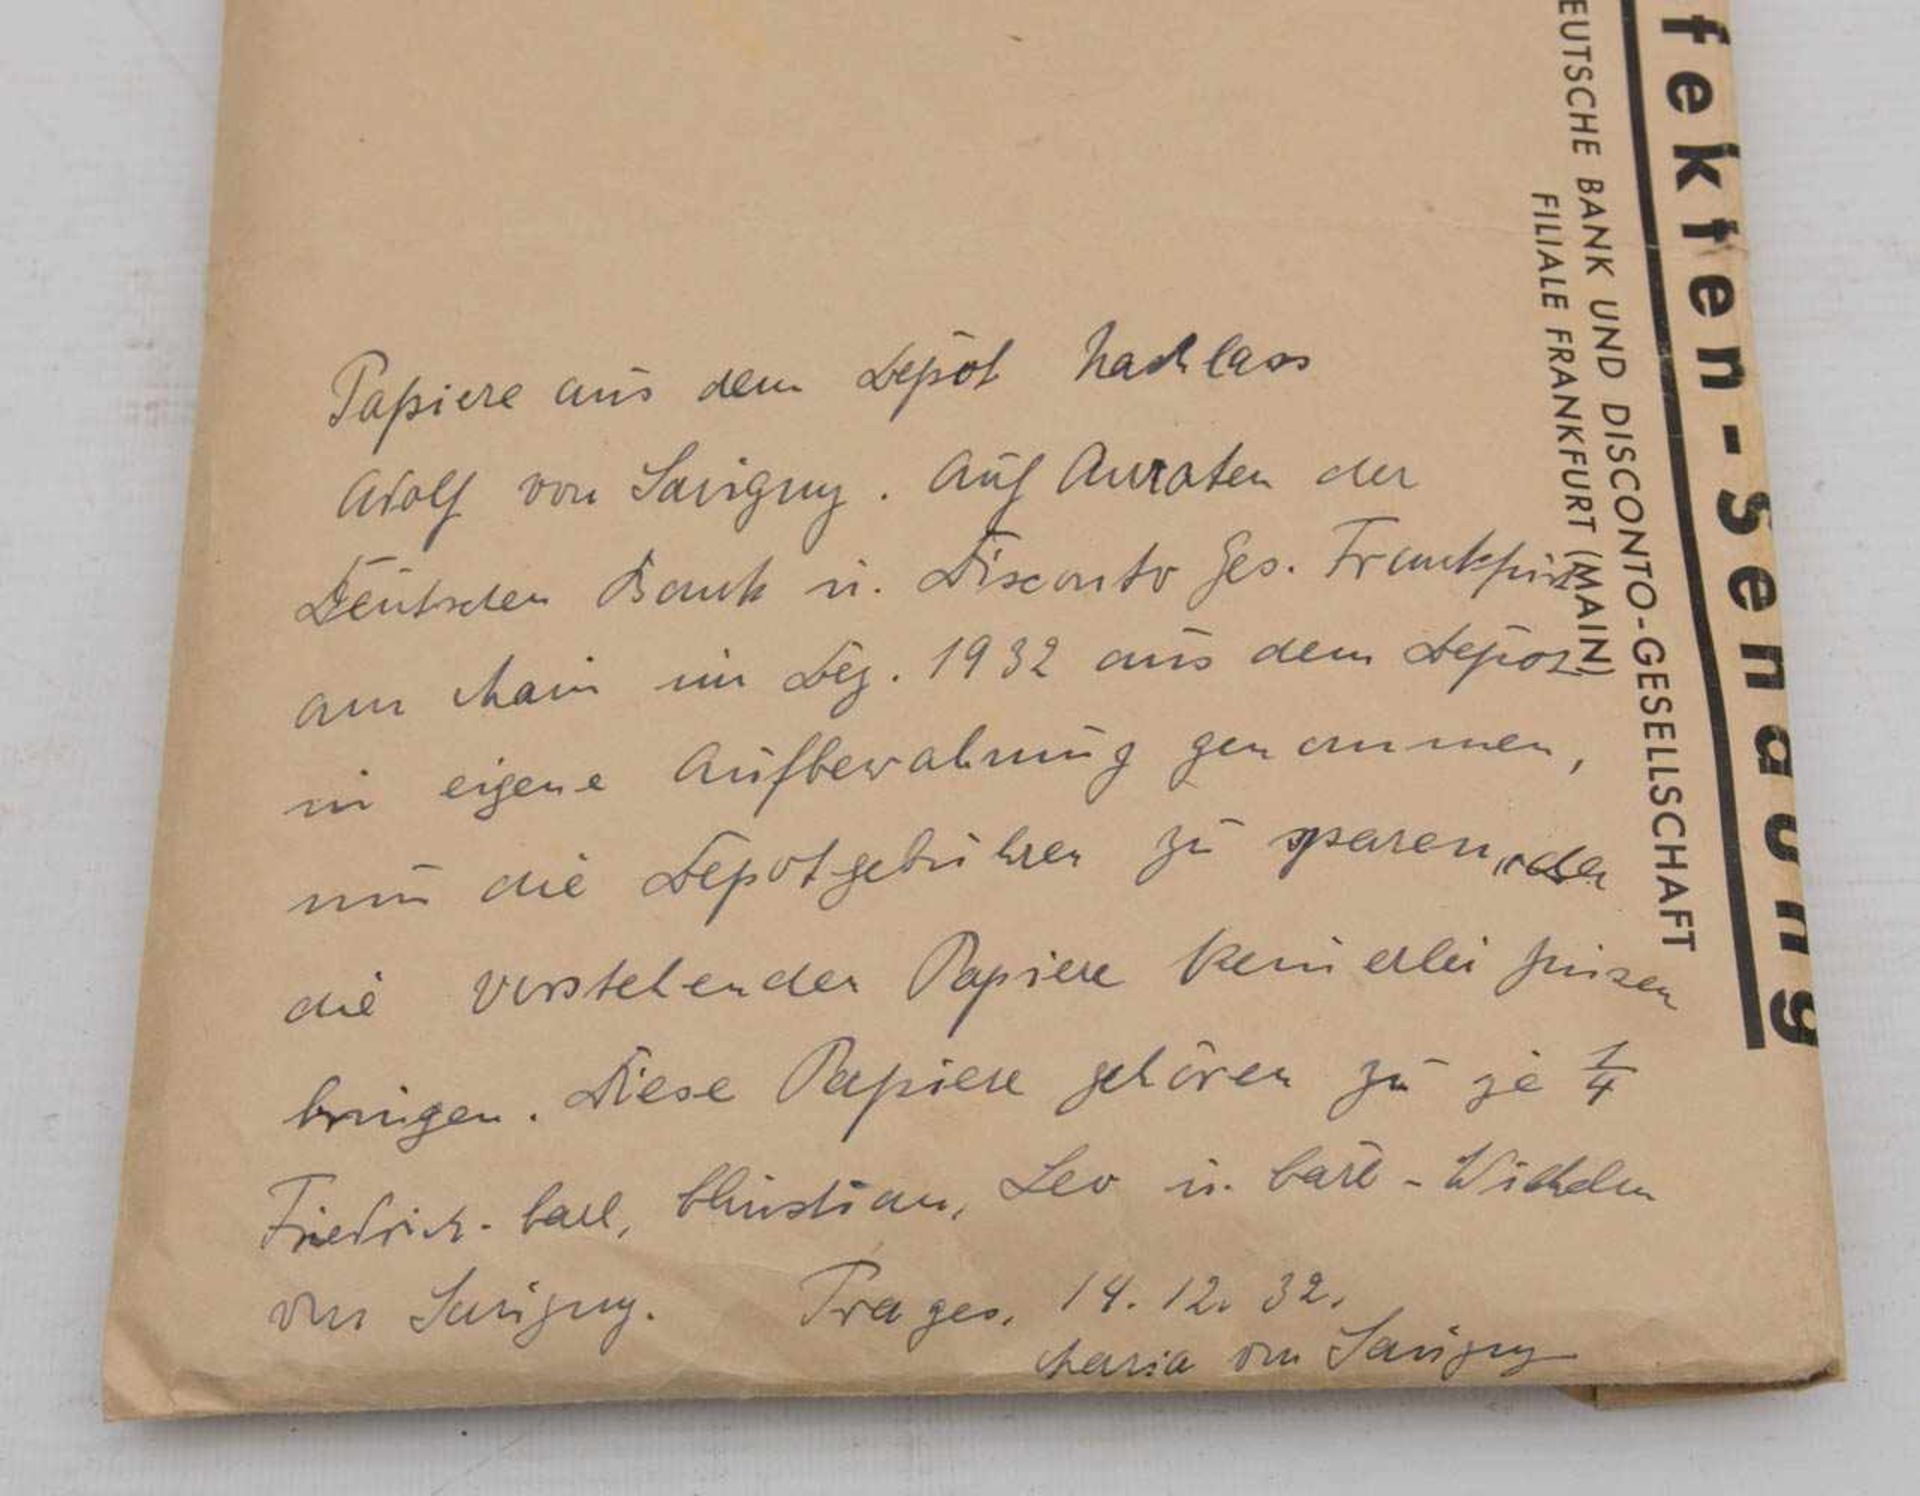 fekten-Sendung
EUTSCHE BANK UND DISCONTO-GESELLSCHAFT
FILIALE FRANKFURT (MAIN)
Papiere aus dem Depot Nachlass
Adolf von Savigny. Auf Anraten der
Deutschen Bank u. Disconto Ges. Frankfurt
am Main im Dez. 1932 aus dem Depot
in eigene Aufbewahrung genommen,
um die Depotgebühren zu sparen, da
die vorstehenden Papiere keinerlei Zinsen
bringen. Diese Papiere gehören zu je 1/4
Friedrich-Carl, Christian, Leo u. Carl-Wilhelm
von Savigny. Trages, 14.12.32.
Maria von Savigny